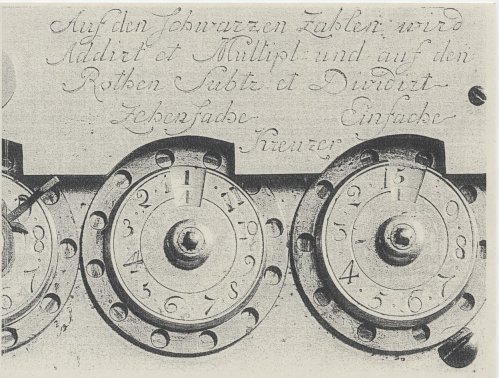 Auf den Schwarzen Zahlen wird
Addirt et Multipl: und auf den
Rothen Subtr et Dividirt
Zehenfache Einfache
Kreuzer
8 7
1 1 2 3 4 5 6 7 8 9
1 2 3 4 5 6 7 8 9